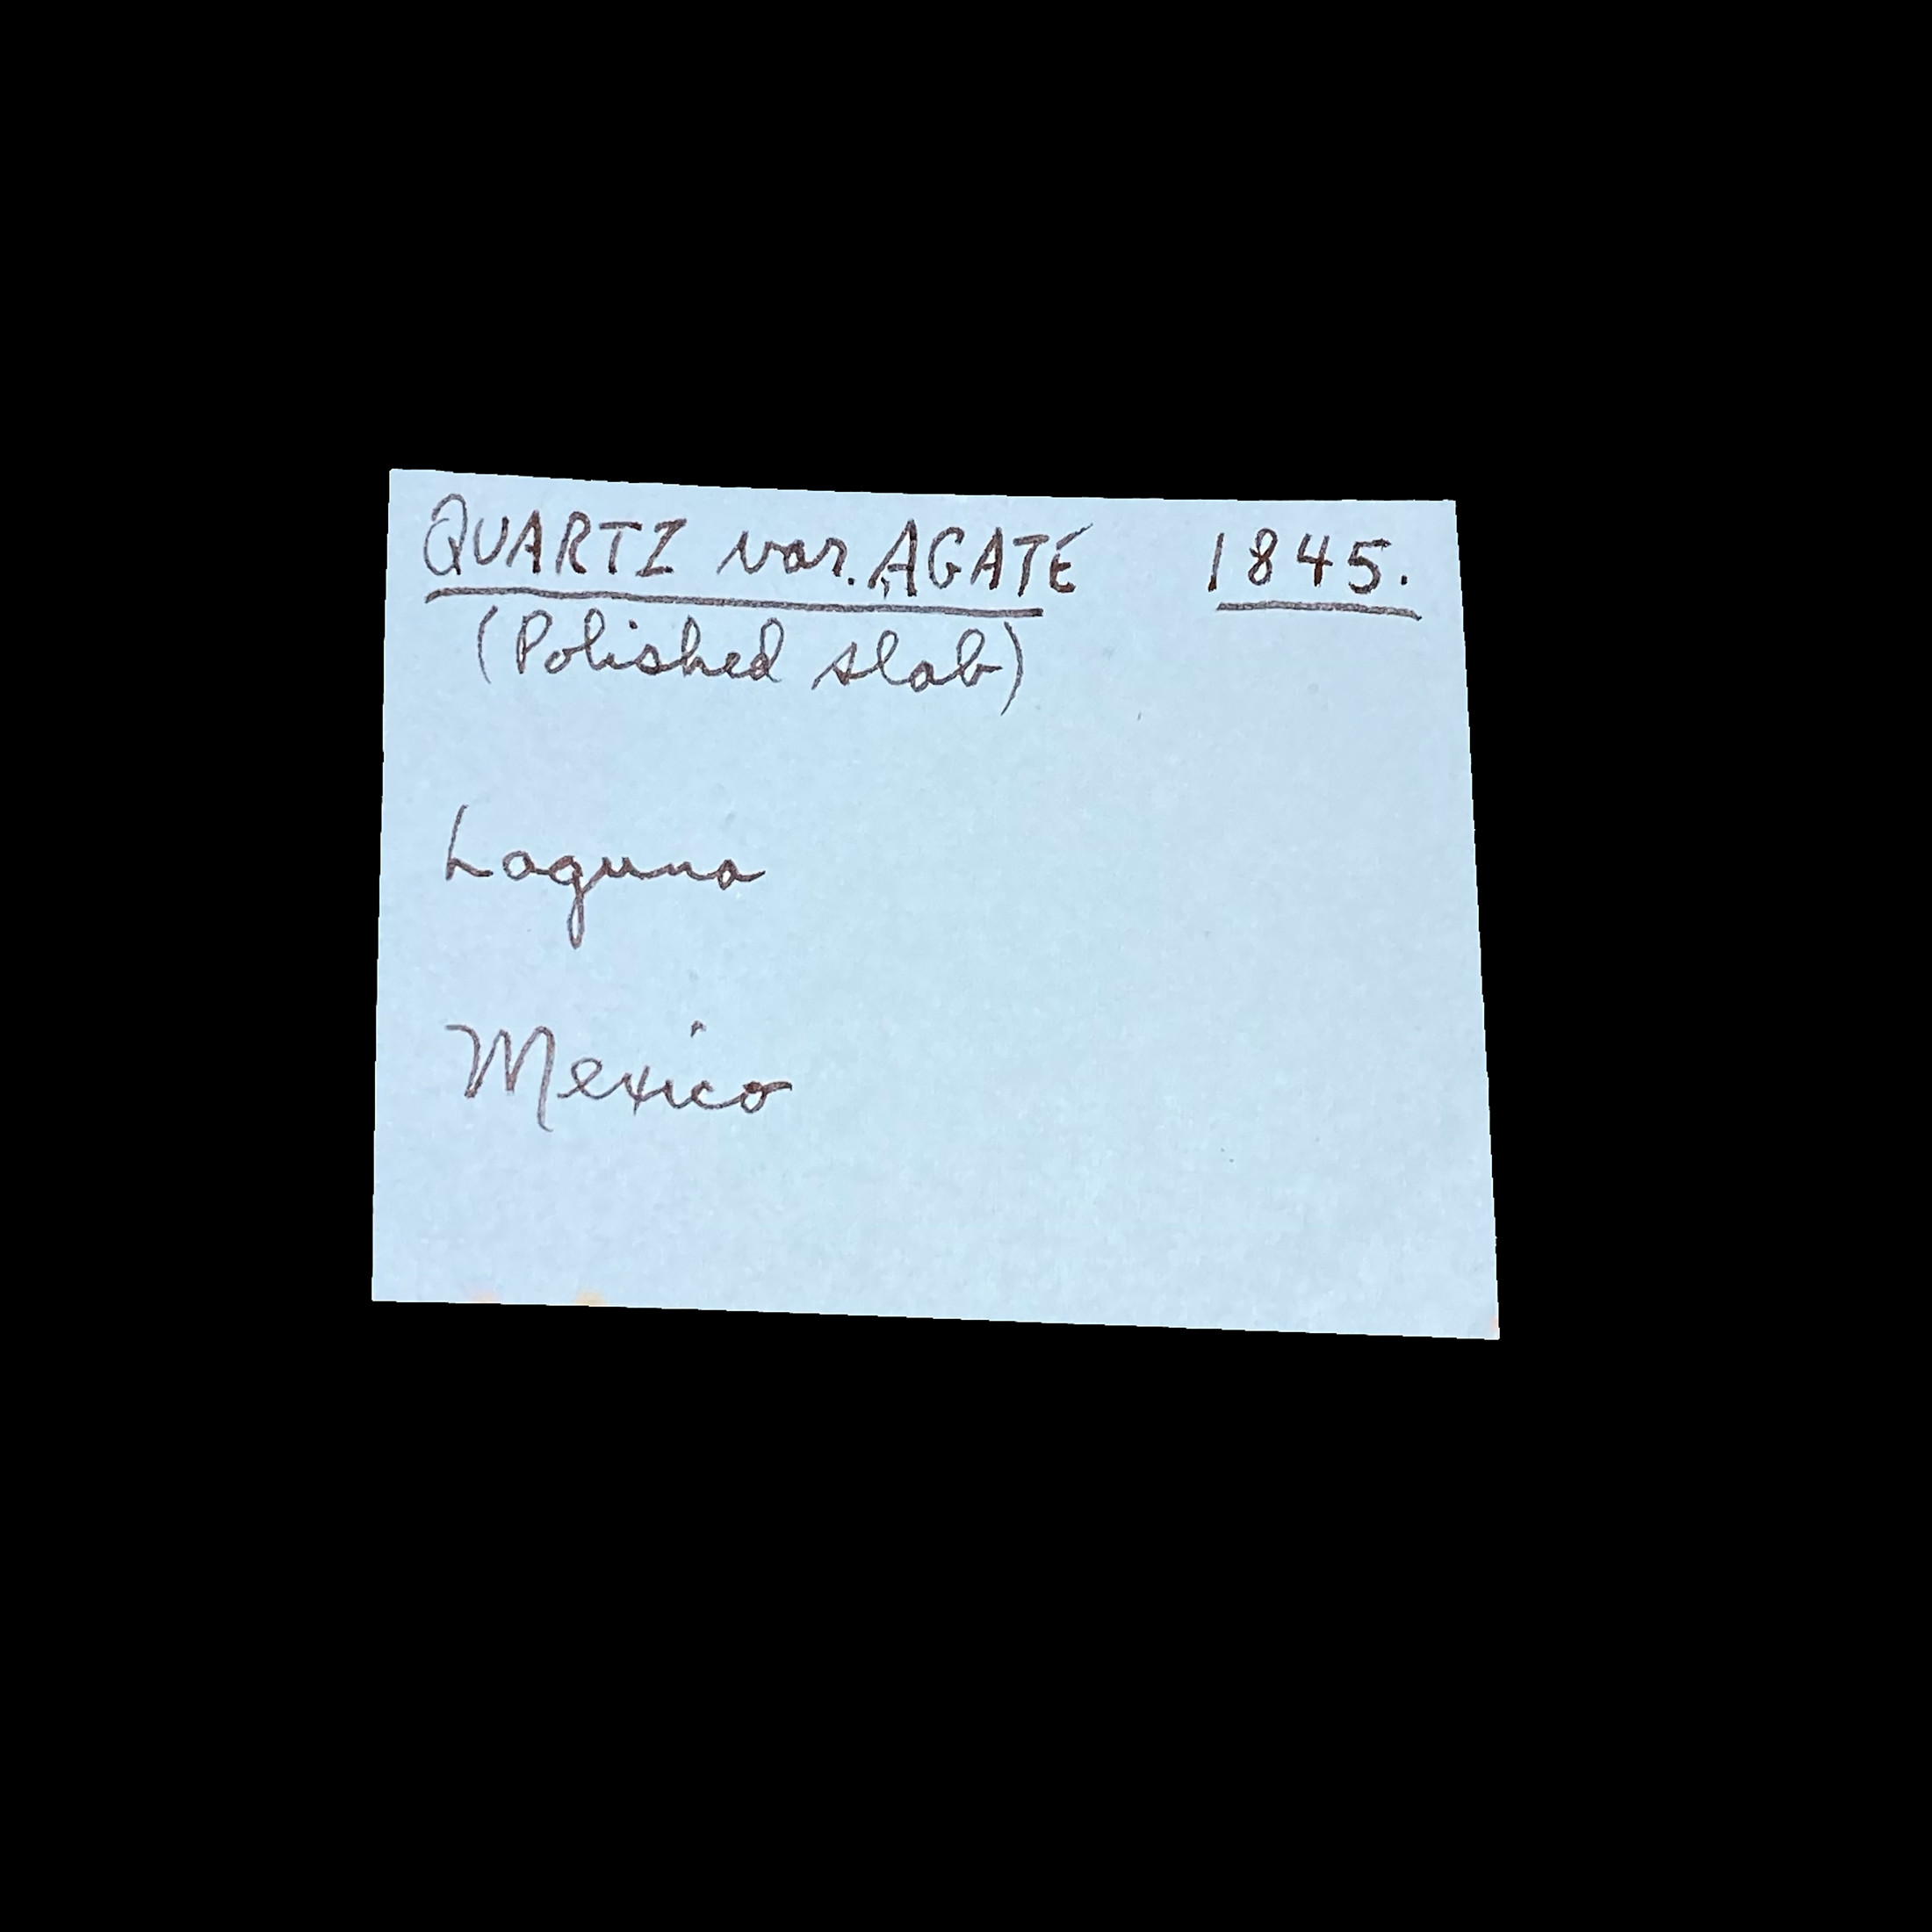 QUARTZ var. AGATE 1845.
(Polished slab)
Laguna
Mexico